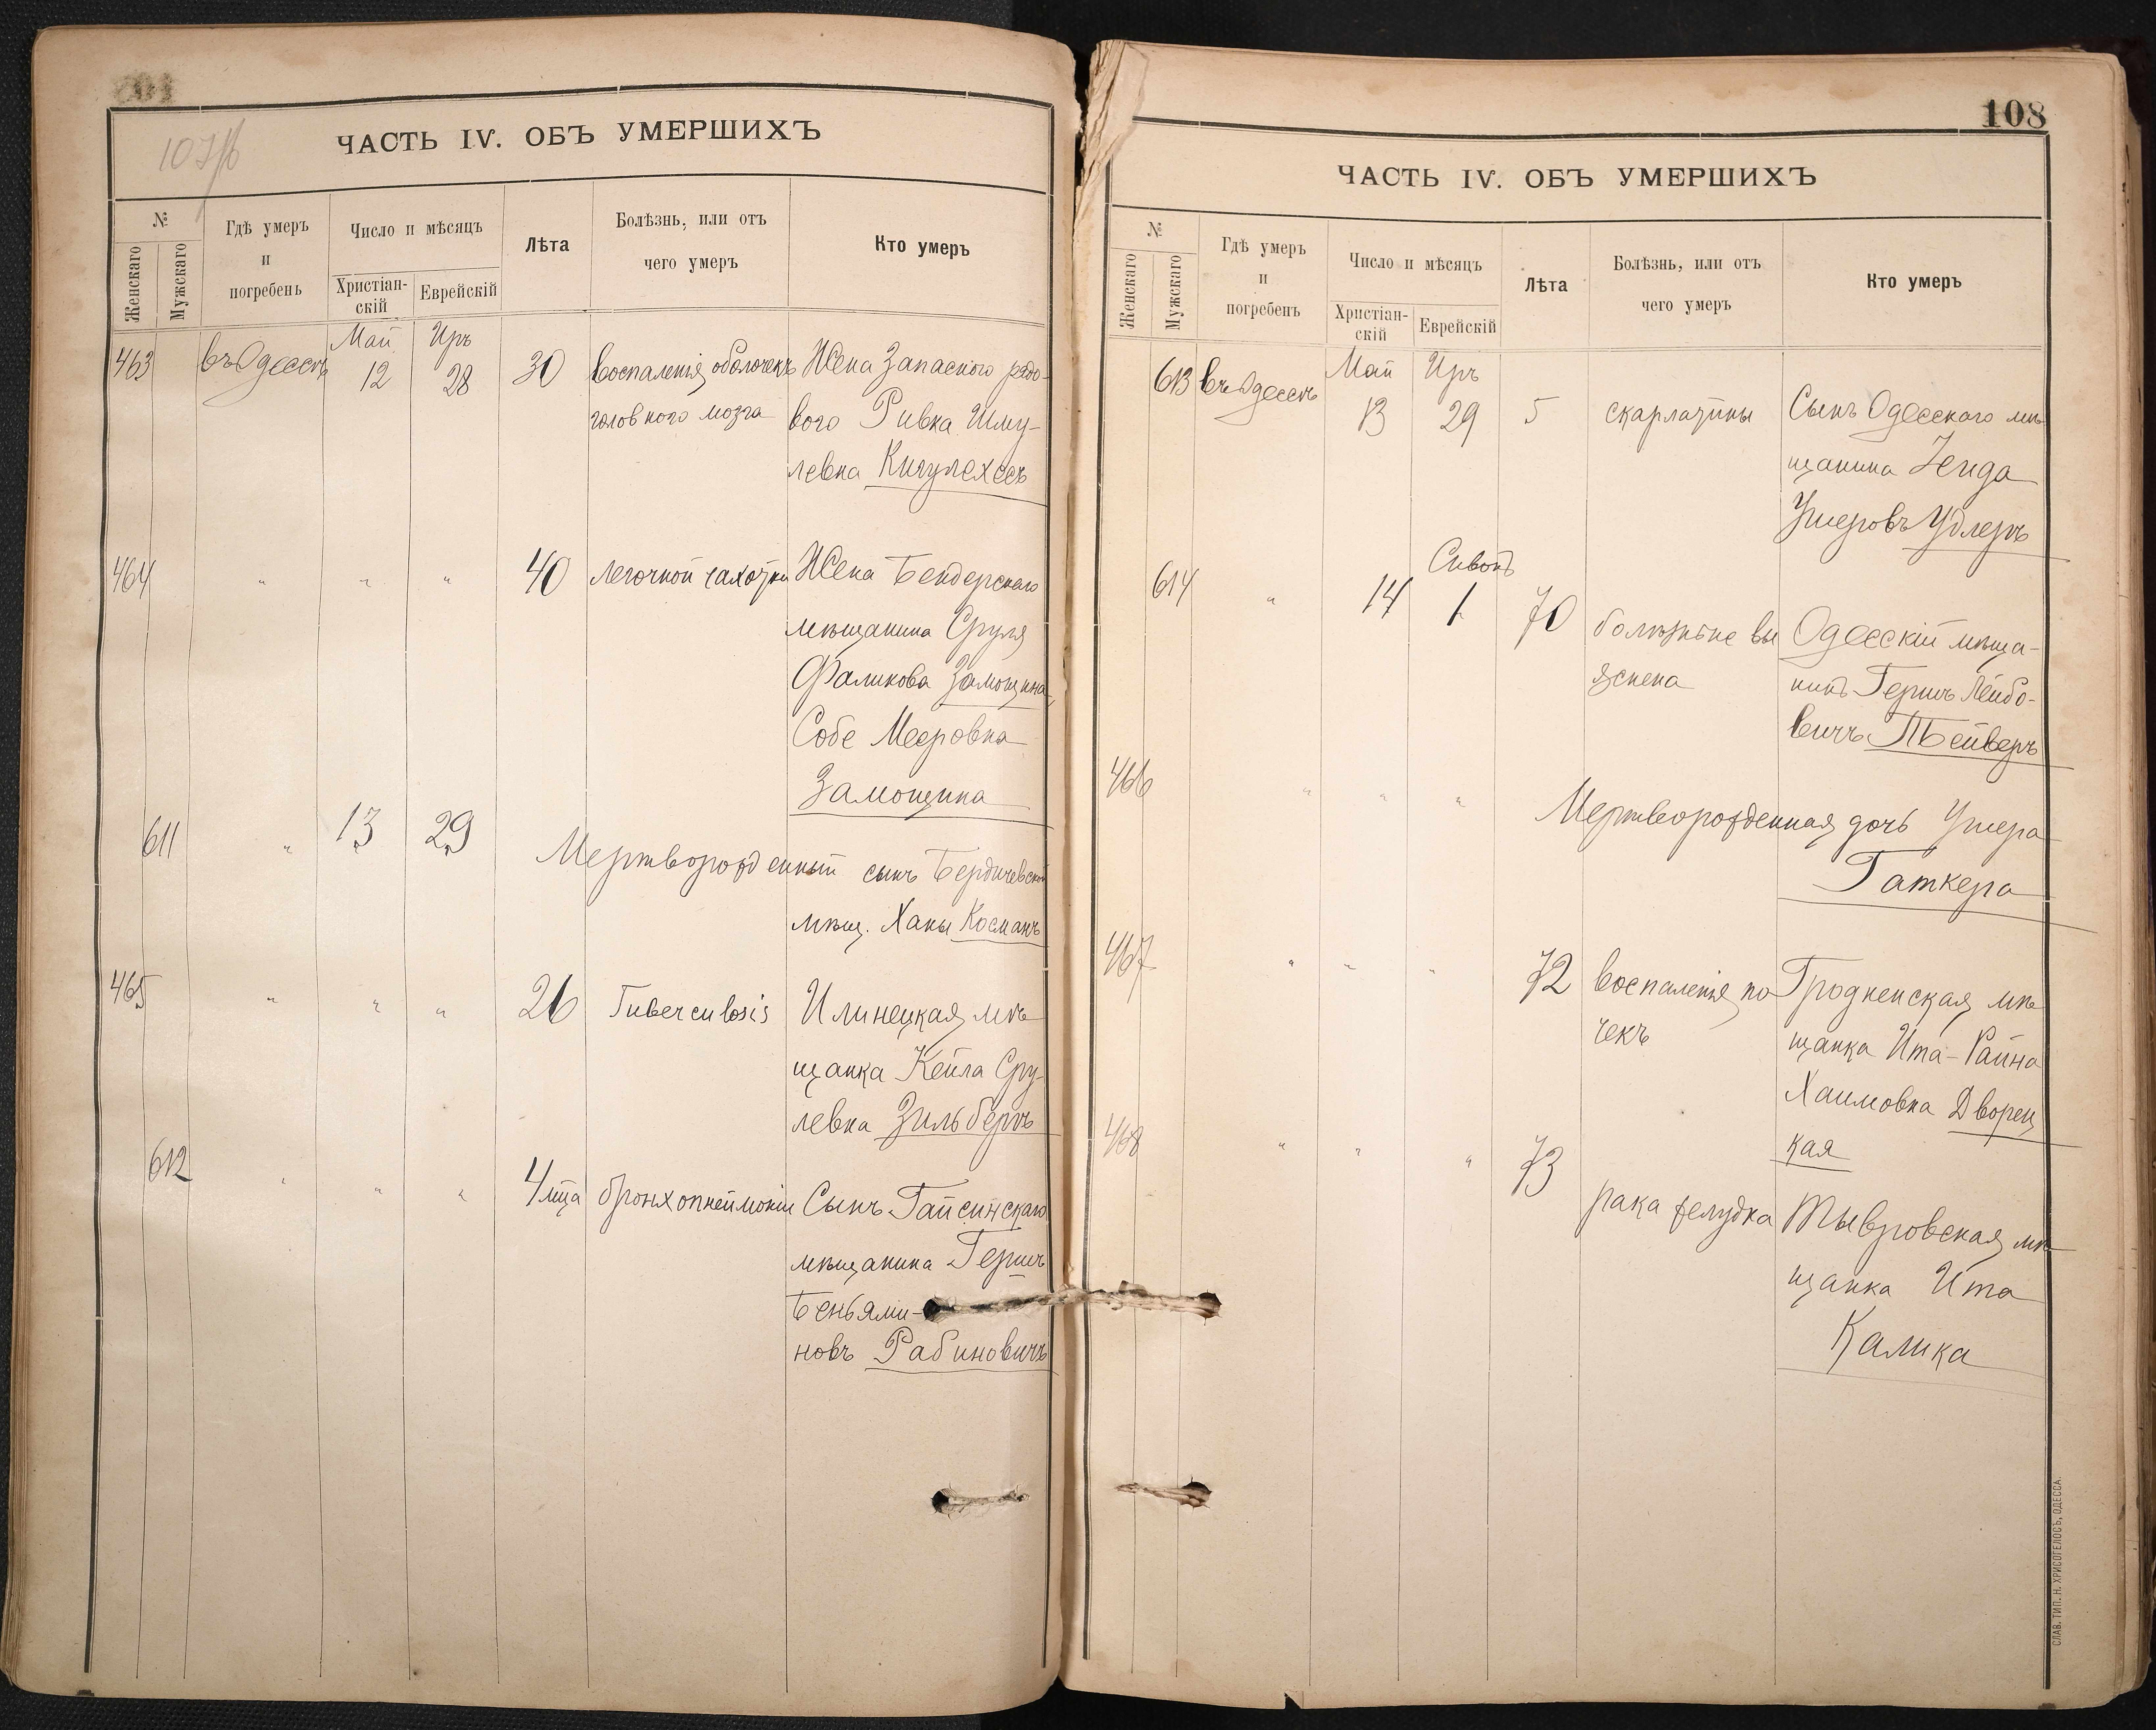 ЧАСТЬ IV. ОБЪ УМЕРШИХЪ
№
Женскаго
Мужскаго
Гдѣ умеръ
и
погребенъ
Число и мѣсяцъ
Христіан-
скій
Еврейскій
Лѣта
Болѣзнь, или отъ
чего умеръ
Кто умеръ
Май Иръ
463 въ Одессѣ 12 28 30 воспаленія оболочекъ Жена Запасного рядо-
головного мозга вого Ривка Шму-
левна Кигулехесъ
464 " " " 40 легочной чахотки Жена Бендерскаго
мѣщанина Сруля
Фаликова Замощина
Собе Мееровна
Замощина
611 " 13 29 Мертворожденный сынъ Бердичевской
мѣщ. Ханы Косманъ
465 " " " 26 Tuberculosis Илинецкая мѣ-
щанка Кейла Сру-
левна Зильберъ
612 " " " 4 мца бронхопнеймоніи Сынъ Гайсинскаго
мѣщанина Гершъ
Беньями-
новъ Рабиновичъ
108
ЧАСТЬ IV. ОБЪ УМЕРШИХЪ
№
Женскаго
Мужскаго
Гдѣ умеръ
и
погребенъ
Число и мѣсяцъ
Христіан-
скій
Еврейскій
Лѣта
Болѣзнь, или отъ
чего умеръ
Кто умеръ
Май Иръ
613 въ Одессѣ 13 29 5 скарлатины Сынъ Одесскаго мѣ-
щанина Зейда
Ушеровъ Удлеръ
Сивонъ
614 " 14 1 70 болѣзнь не вы Одесскій мѣща-
яснена нинъ Гершъ Лейбо-
вичъ
466 " " " Мертворожденная дочь Ушера
Гаткера
467 " " " 72 воспаленія по Гродненская мѣ
чекъ щанка Ита-Райна
Хаимовна Дворец
кая
468 " " " 73
рака желудка Тывровская мѣ
щанка Ита
Калика
СЛАВ. ТИП. Н. ХРИСОГЕЛОСЪ, ОДЕССА.